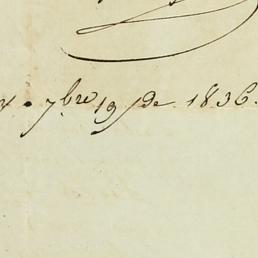 7.bre 19 / de 1836.